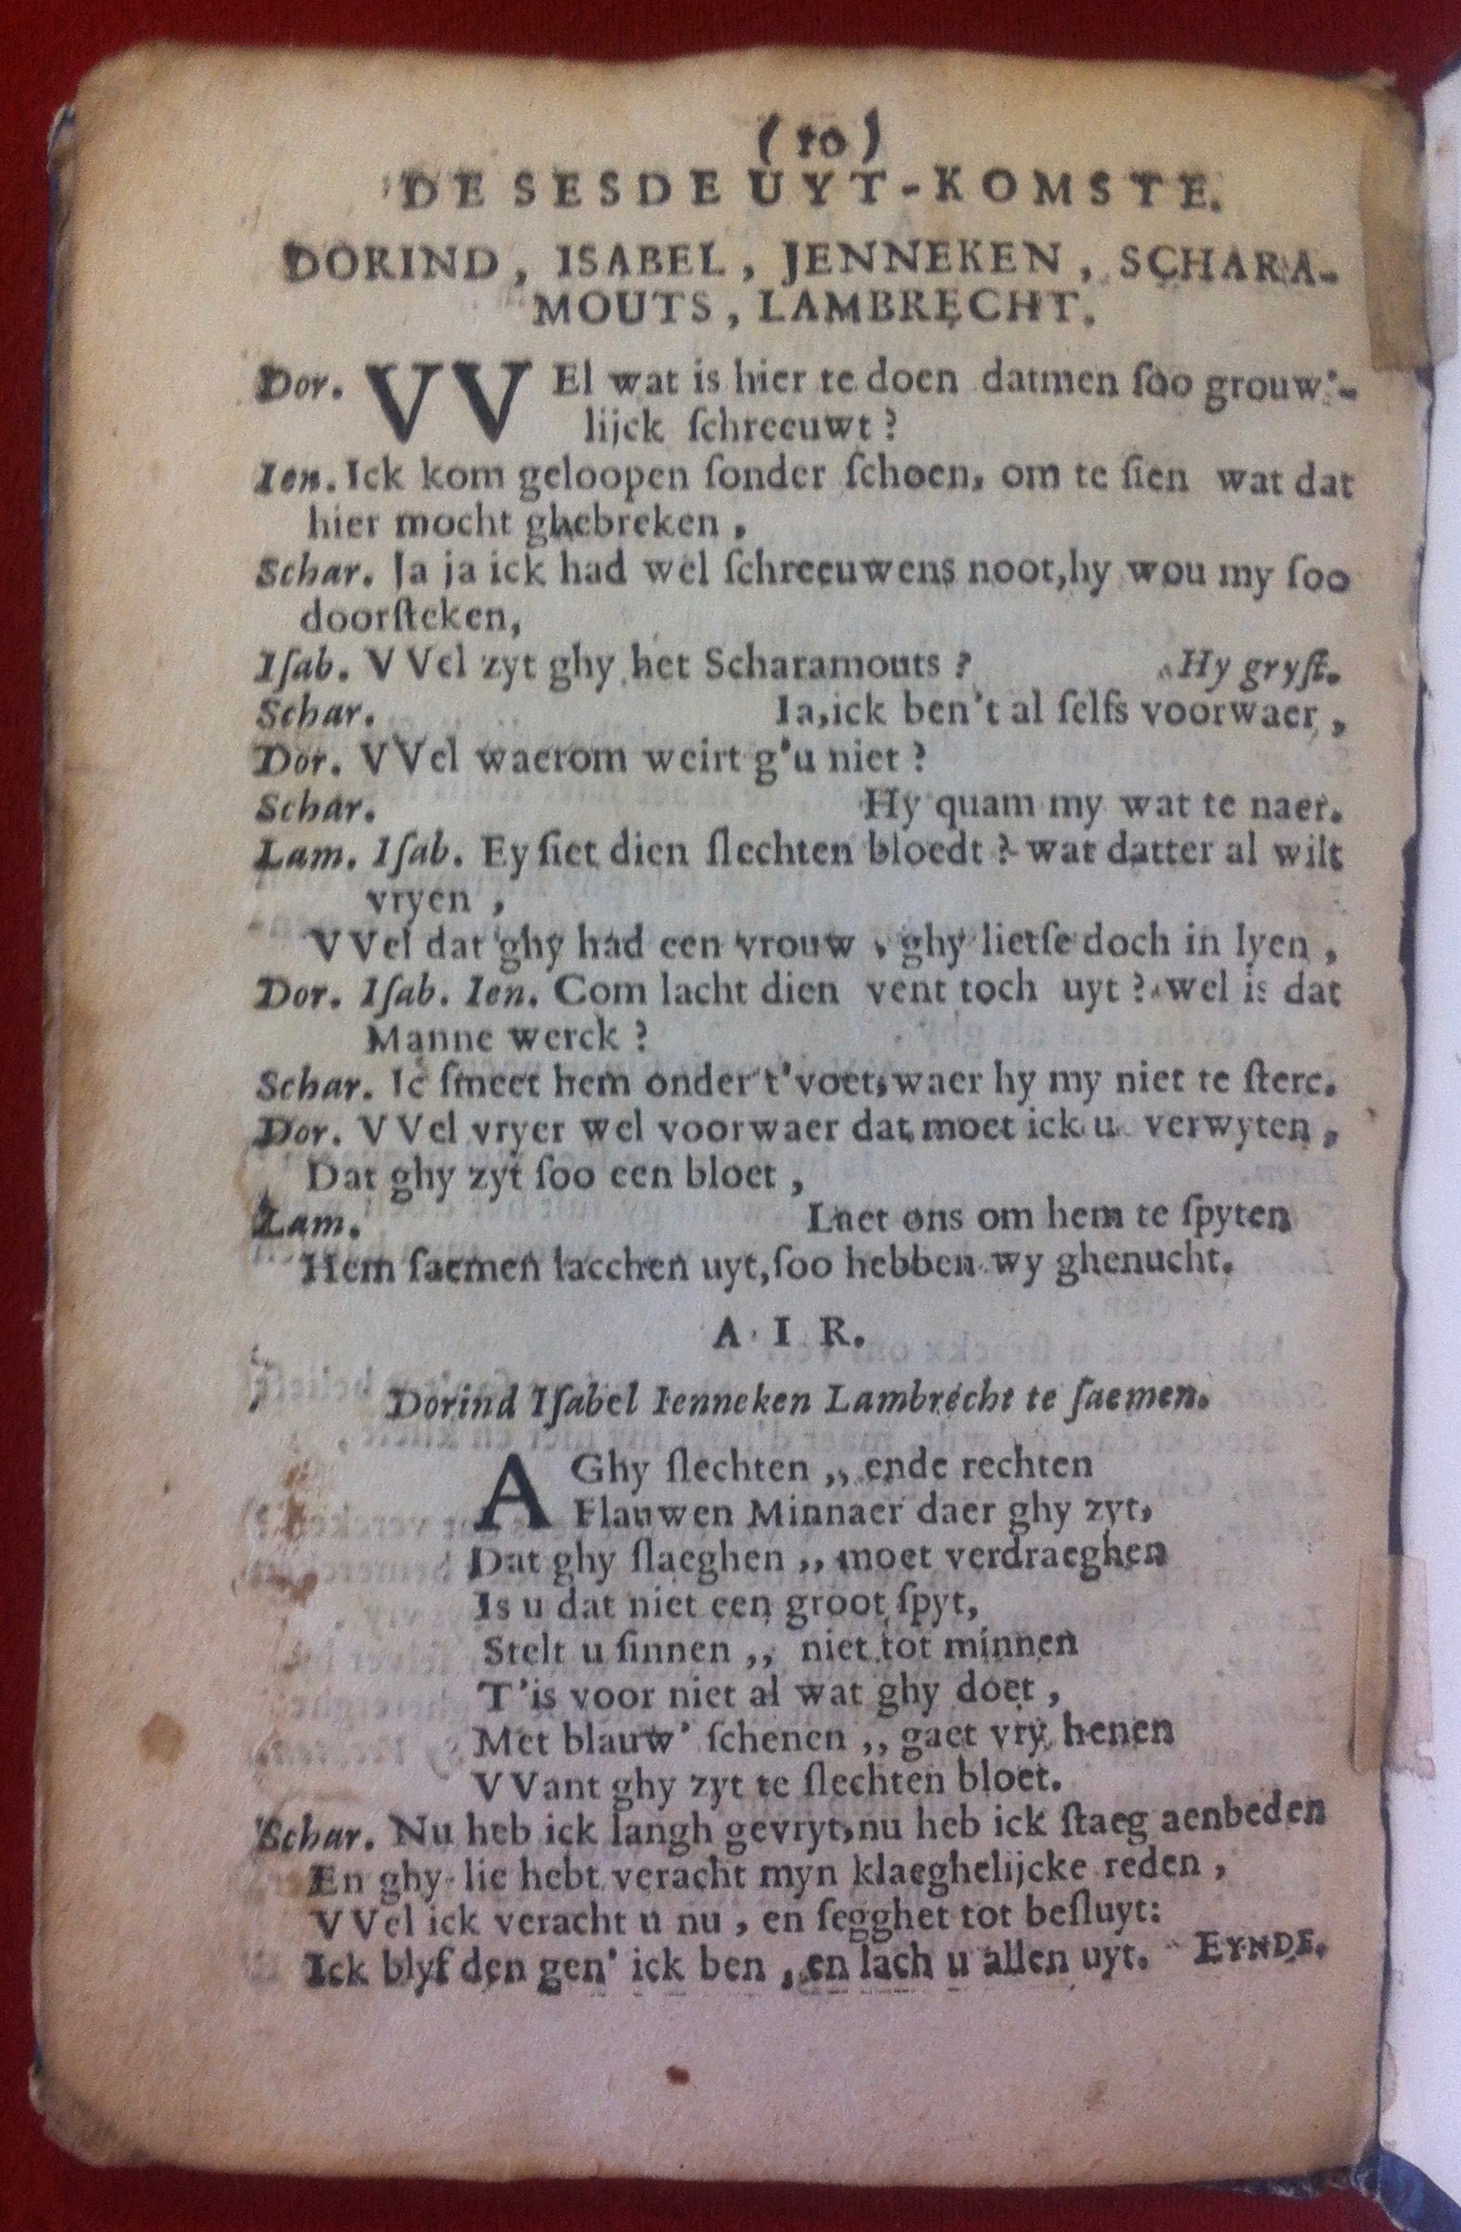 (10)
DE SESDE UYT-KOMSTE.
DORIND, ISABEL, JENNEKEN, SCHARA-
MOUTS, LAMBRECHT.
Dor. VVEl wat is hier te doen datmen ſoo grouw'-
lijck ſchreeuwt?
Ien. Ick kom geloopen ſonder ſchoen, om te ſien wat dat
hier mocht ghebreken,
Schar. Ja ja ick had wel ſchreeuwens noot, hy wou my ſoo
doorſteken,
Iſab. VVel zyt ghy het Scharamouts? Hy gryſt.
Schar. Ia, ick ben't al ſelfs voorwaer,
Dor. VVel waerom weirt g'u niet?
Schar. Hy quam my wat te naer.
Lam. Iſab. Ey ſiet dien ſlechten bloedt? wat datter al wilt
vryen,
VVel dat ghy had een vrouw, ghy lietſe doch in lyen,
Dor. Iſab. Ien. Com lacht dien vent toch uyt? wel is dat
Manne werck?
Schar. Ic ſmeet hem onder t'voet, waer hy my niet te sterc.
Dor. VVel vryer wel voorwaer dat moet ick u verwyten,
Dat ghy zyt ſoo een bloet,
Lam. Laet ons om hem te ſpyten
Hem ſaemen lacchen uyt, ſoo hebben wy ghenucht.
AIR.
Dorind Iſabel Ienneken Lambrecht te ſaemen.
A Ghy ſlechten ,, ende rechten
Flauwen Minnaer daer ghy zyt,
Dat ghy ſlaeghen ,, moet verdraeghen
Is u dat niet een groot ſpyt,
Stelt u ſinnen ,, niet tot minnen
T'is voor niet al wat ghy doet,
Met blauw' ſchenen ,, gaet vry henen
VVant ghy zyt te ſlechten bloet.
Schar. Nu heb ick langh gevryt, nu heb ick ſtaeg aenbeden
En ghy-lie hebt veracht myn klaeghelijcke reden,
VVel ick veracht u nu, en ſegghet tot beſluyt:
Ick blyf den gen' ick ben, en lach u allen uyt. EYNDE.